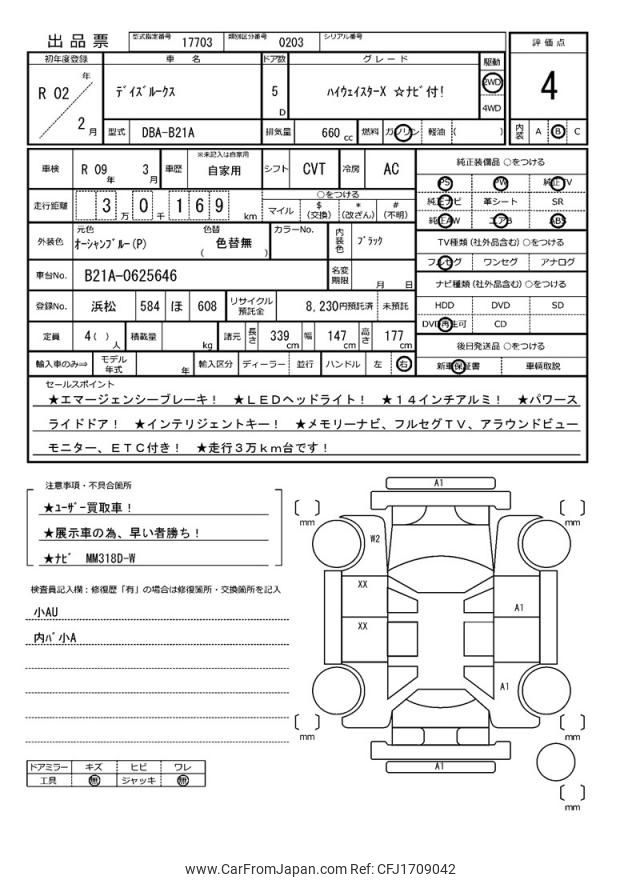 出品票 型式指定番号 17703 類別区分番号 0203 シリアル番号
評価点
初年度登録 車名 ドア数 グレード 駆動
R 02 年 ﾃﾞｲｽﾞﾙｰｸｽ 5 D ﾊｲｳｪｲｽﾀｰX ☆ﾅﾋﾞ付! 2WD 4
4WD
2 月 型式 DBA-B21A 排気量 660 cc 燃料 ガソリン 軽油 ( ) 内装 A B C
車検 R 09 年 3 月 車歴 ※未記入は自家用 自家用 シフト CVT 冷房 AC
走行距離 3 万 0 千 1 6 9 km ○をつける
マイル $ (交換) * (改ざん) # (不明)
外装色 元色 ｵｰｼｬﾝﾌﾞﾙｰ(P) 色替 ( 色替無 ) カラーNo. 内装色 ﾌﾞﾗｯｸ
車台No. B21A-0625646 名変期限 月 日
登録No. 浜松 584 ほ 608 リサイクル預託金 8,230円預託済 未預託
定員 4( ) 人 積載量 kg 諸元 長さ 339 cm 幅 147 cm 高さ 177 cm
輸入車のみ⇒ モデル年式 年 輸入区分 ディーラー 並行 ハンドル 左 右
純正装備品 ○をつける
PS PW 純正TV
純正ナビ 革シート SR
純正AW エアB ABS
TV種類 (社外品含む) ○をつける
フルセグ ワンセグ アナログ
ナビ種類 (社外品含む) ○をつける
HDD DVD SD
DVD再生可 CD
後日発送品 ○をつける
新車保証書 車輌取説
セールスポイント
★エマージェンシーブレーキ! ★LEDヘッドライト! ★14インチアルミ! ★パワース
ライドドア! ★インテリジェントキー! ★メモリーナビ、フルセグTV、アラウンドビュー
モニター、ETC付き! ★走行3万km台です!
注意事項・不具合箇所
★ﾕｰｻﾞｰ買取車!
★展示車の為、早い者勝ち!
★ﾅﾋﾞ MM318D-W
検査員記入欄:修復歴「有」の場合は修復箇所・交換箇所を記入
小AU
内ﾊﾞ小A
ドアミラー キズ ヒビ ワレ
工具 無 ジャッキ 無
A1
mm mm
W2
XX
A1
XX
A1
mm mm
A1
mm
www.CarFromJapan.com Ref: CFJ1709042